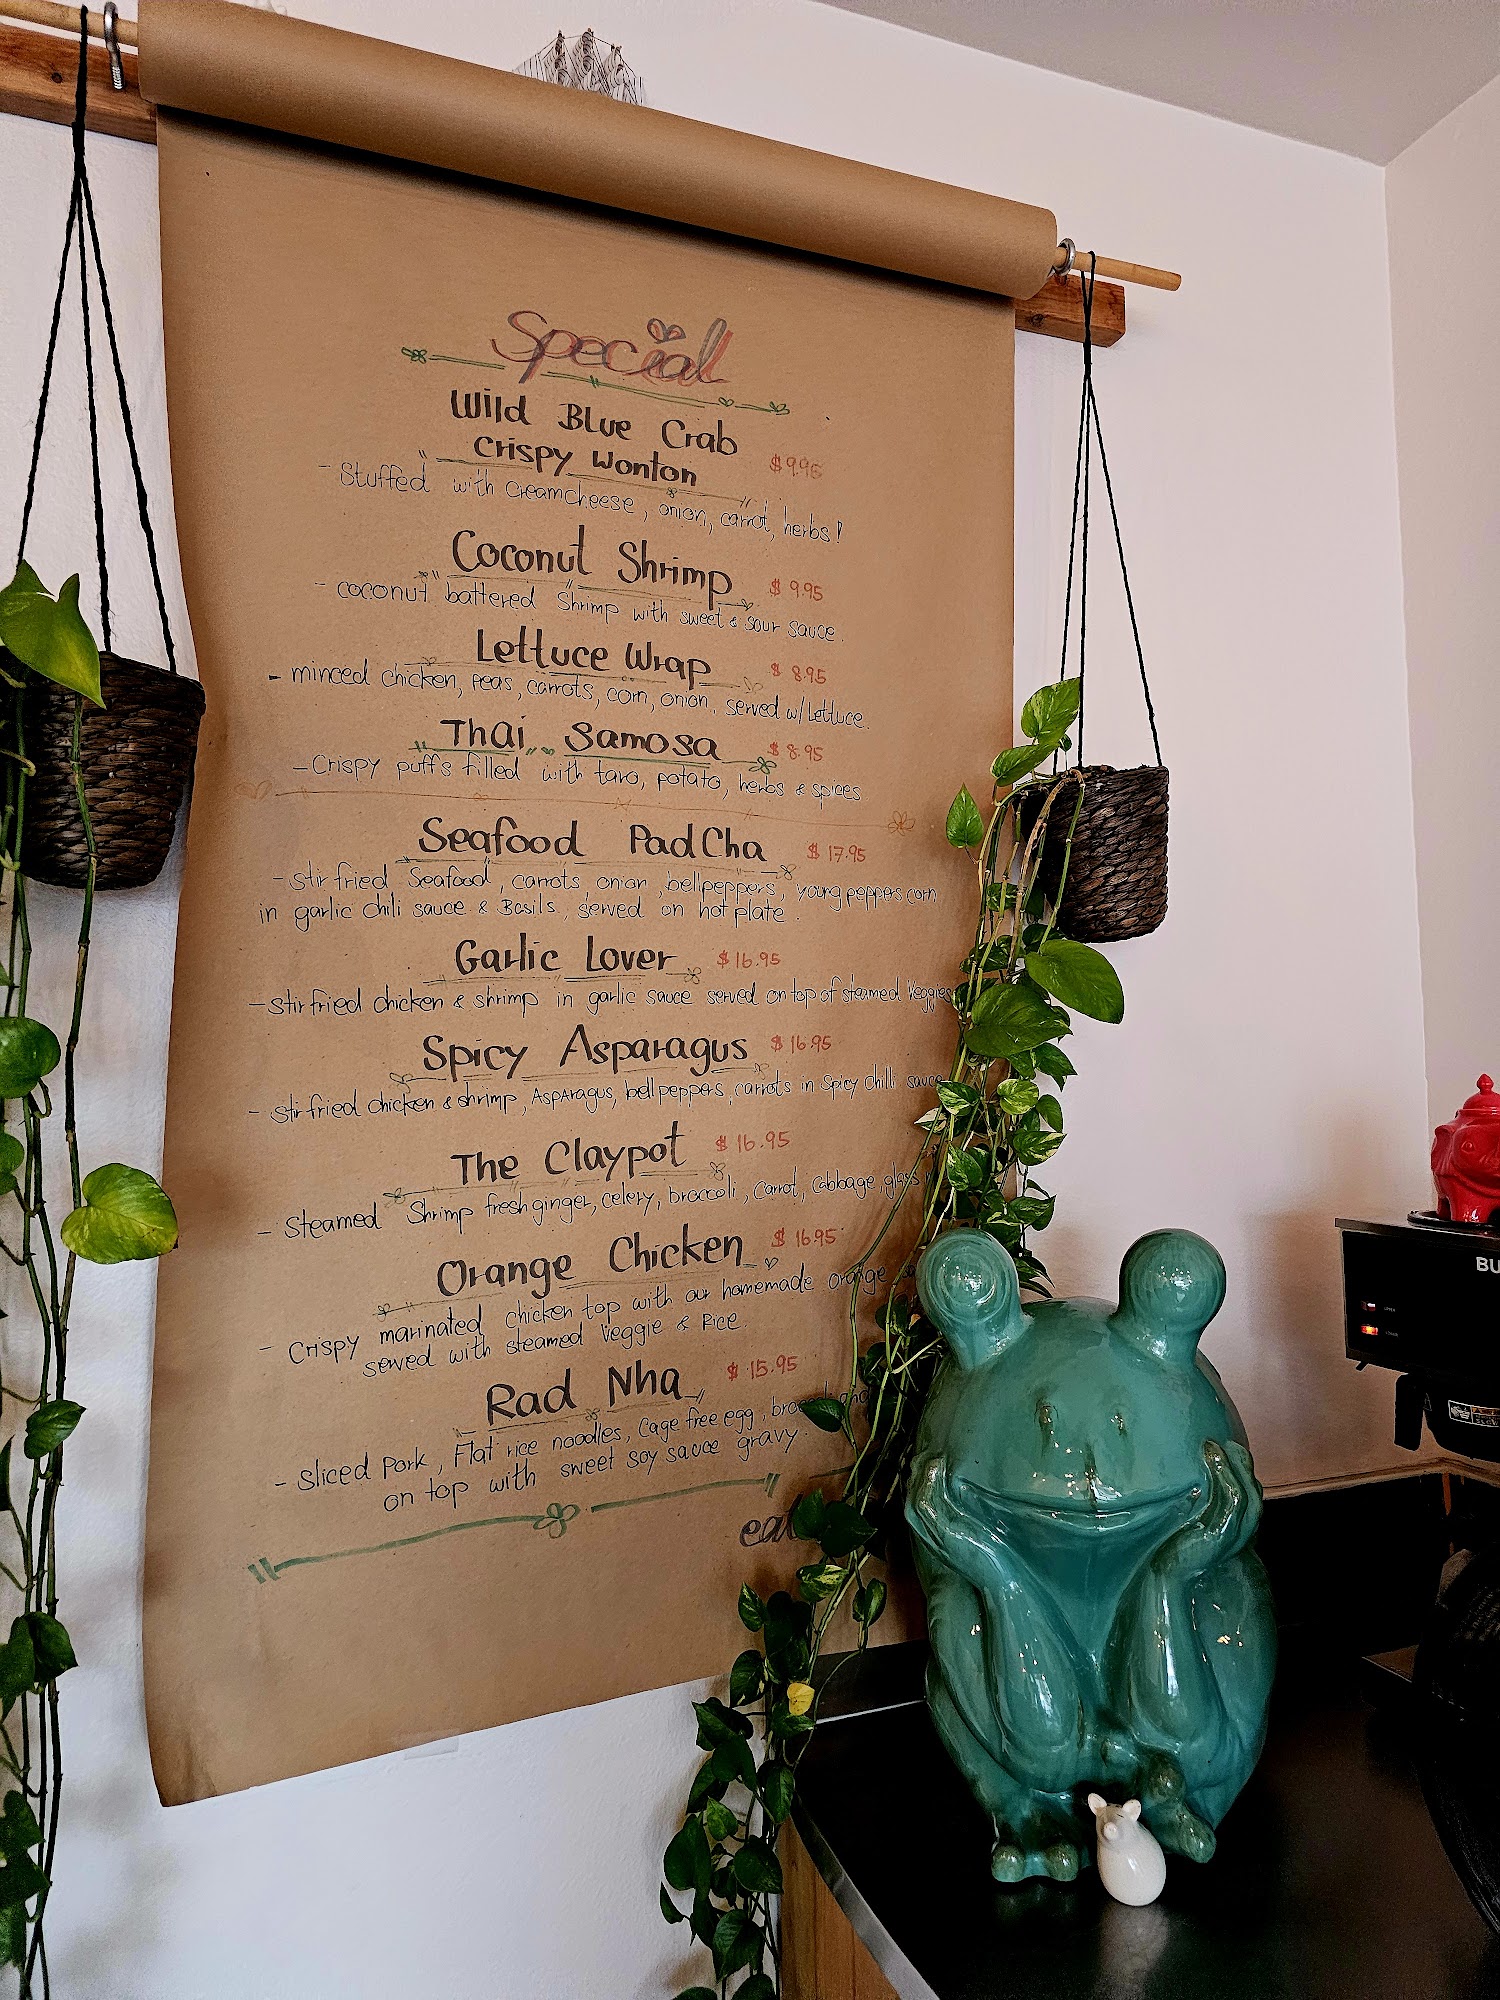 Special
Wild Blue Crab
"Crispy Wonton
$9.95
- Stuffed with creamcheese, onion, carrot, herbs!
Coconut Shrimp
$9.95
- coconut battered Shrimp with sweet & sour sauce.
Lettuce Wrap
$8.95
- minced chicken, peas, carrots, corn, onion. served w/Lettuce.
Thai Samosa
$8.95
- Crispy puffs filled with taro, potato, herbs & spices
Seafood Pad Cha $17.95
- stir fried Seafood, carrots, onion, bellpeppers, young peppers corn
in garlic chili sauce & Basils, served on hot plate.
Garlic Lover $16.95
- stir fried chicken & shrimp in garlic sauce served on top of steamed Veggies
Spicy Asparagus $16.95
- stir fried chicken & shrimp, Asparagus, bell peppers, carrots in Spicy chilli sauce
The Claypot $16.95
- Steamed Shrimp fresh ginger, celery, broccoli, carrot, cabbage, glass
Orange Chicken $16.95
- Crispy marinated chicken top with our homemade orange
served with steamed Veggie & Rice.
Rad Nha $15.95
- Sliced Pork, Flat rice noodles, Cage free egg,
on top with sweet soy sauce gravy.
eat
BU